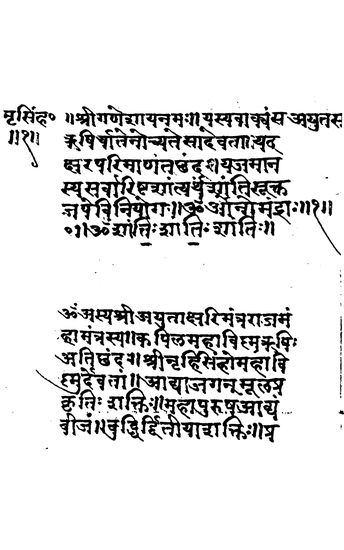 नृसिंह० ॥श्रीगणेशायनमः॥यस्यवाक्यंस अयुतस
॥१॥ ऋषिर्यातेनोच्यतेसादेवता॥यद
क्षरपरिमाणंतछंदः॥यजमान
स्यसर्वारिष्टशांत्यर्थंशांतिसूक्त
जपेविनियोगः॥ॐआनोभद्राः॥१॥
०॥ॐशांतिःशांतिःशांतिः॥
ॐअस्यश्रीअयुताक्षरिमंत्रराजमं
हामंत्रस्य॥कपिलमहाविष्णुऋषिः
अतिछंदः॥श्रीनृहिसिंहोमहावि
ष्णुदेवता॥आद्याजगन्मूलप्र
कृतिः शक्तिः॥महापुरुषआद्यं
बीजं॥बुद्धिर्द्वितीयाशक्तिः॥प्र